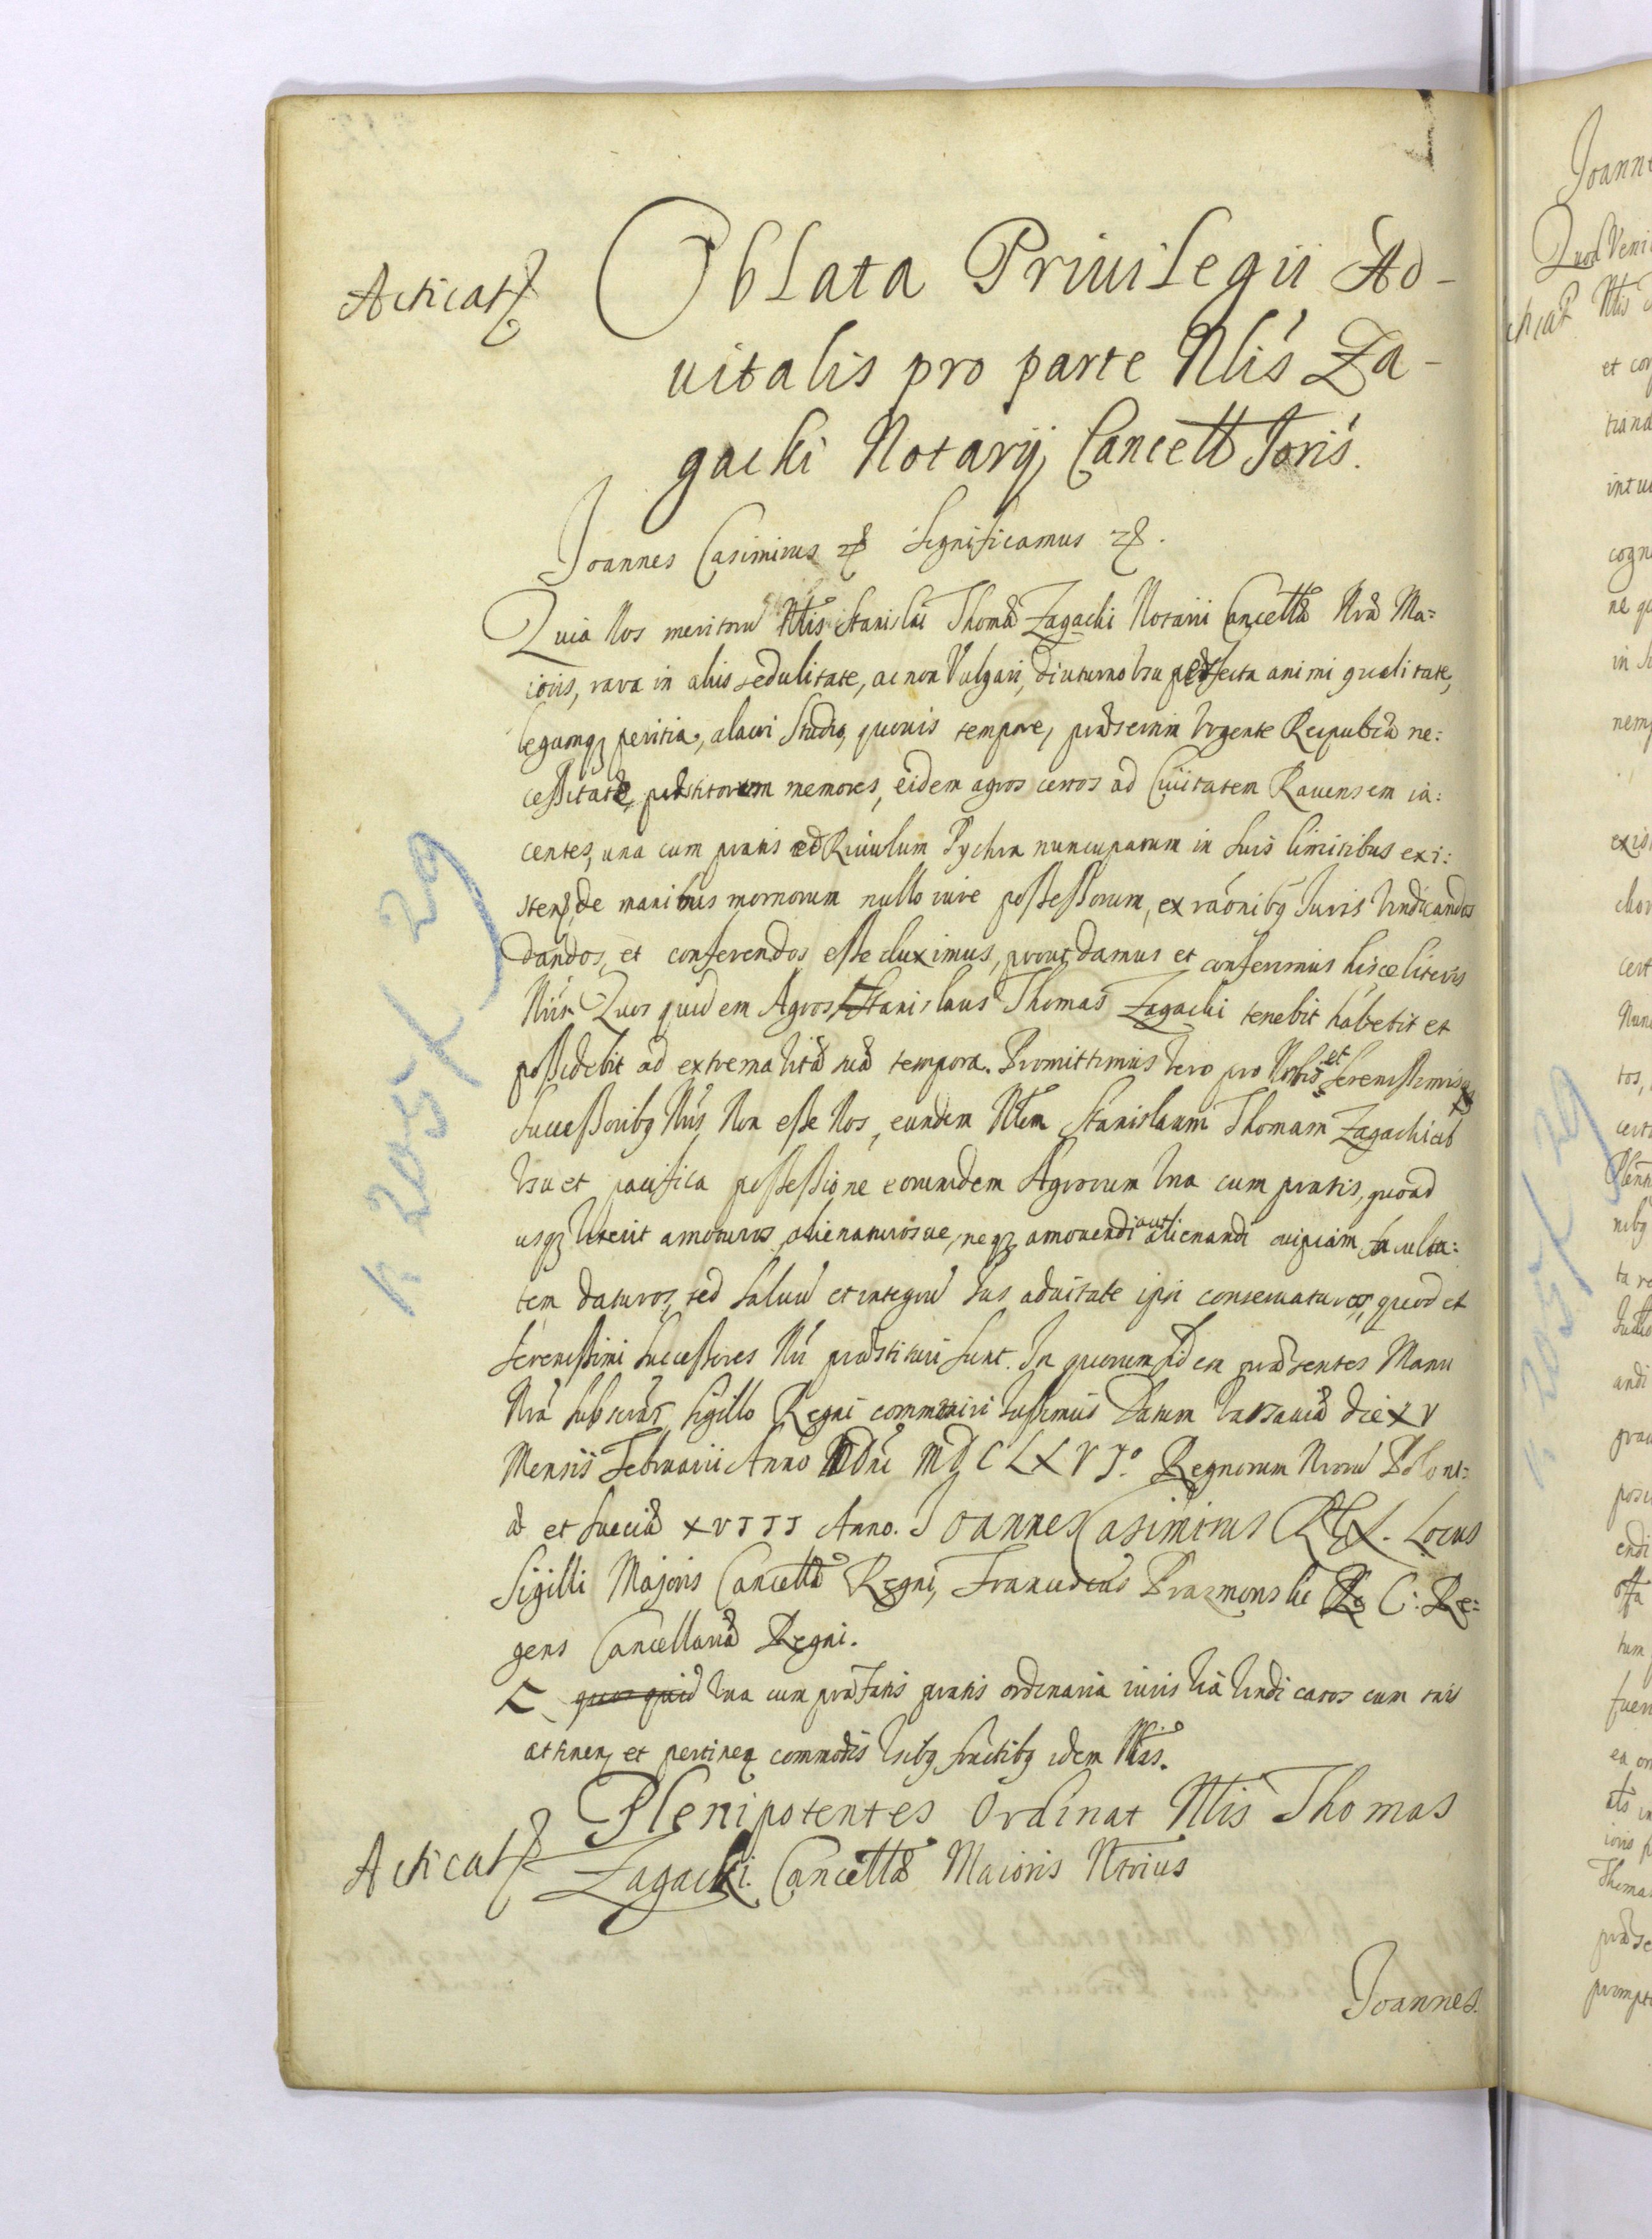 Acticat
Oblata Priuilegii Ad-
uitalis pro parte Nlis Za-
gacki Notarÿ Cancell Joris.
Joannes Casimirus Significamus
Quia Nos meritoru Nlis Stanislai Thomæ Zagacki Notarii Cancellæ Nræ Ma=
ioris, rara in aliis sedulitate, ac non Vulgari, diuturno Usu perfecta animi qualitate,
legumqz peritia, alacri Studio, quouis tempore, præsertim Urgente Reipublicæ ne:
cessitate, præstitorum memores, eidem agros certos ad Ciuitatem Rauensem ia:
centes, una cum pratis ad Riuulum Rychra nuncupatum in suis limitibus exi:
sten, de manibus mornorum nullo iure possessorum, ex raonibq Juris Vindicandos
dandos, et conferendos esse duximus, prout damus et conferimus hisce literis
Nris. Quos quidem Agros Stanislaus Thomas Zagacki tenebit habebit et
possidebit ad extrema Uitæ suæ tempora. Promittimus Uero pro Nobis et Serenissimis
Successoribq Nris, Non esse Nos, eundem Nlem Stanislaum Thomam Zagacki ab
Usu et pacifica possessione eorumdem Agrorum Una cum pratis, quoad
usqz Uixerit amoturos, alienaturosue, neqz amouendi aut alienandi cuipiam faculta:
tem daturos, sed saluu et integru Jus aduitale ipsi conseruaturos, quod et
Serenissimi Successores Nri præstituri sunt. In quorum fidem præsentes Manu
Nrâ subscrat Sigillo Regni communiri Jussimus Datum Varsauiæ die XV
Mensis Februarii Anno Dni MDCLXVJo. Regnorum Nroru Poloni:
æ et Sueciæ XVJJJ Anno. Joannes Casimirus REX. Locus
Sigilli Majoris Cancellæ Regni, Franciscus Prazmonski R C: Re:
gens Cancellariæ Regni.
quos quid Una cum præfatis pratis ordinaria iuris Uiâ Uindicatos cum suis
attinen et pertinen commodis Usibq fructibq idem Nlis.
Acticat
Plenipotentes Ordinat Nlis Thomas
Zagacki Cancellæ Maioris Ntrius
Joannes.
k. 205/29